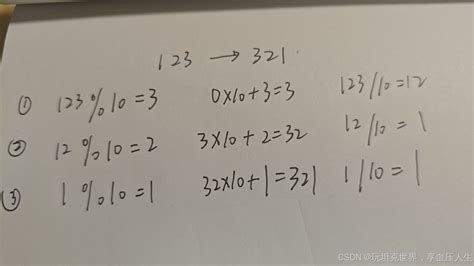 123 → 321
① 123%10=3 0x10+3=3 123/10=12
② 12%10=2 3x10+2=32 12/10=1
③ 1%10=1 32x10+1=321 1/10=1
CSDN @玩坦克世界,享血压人生